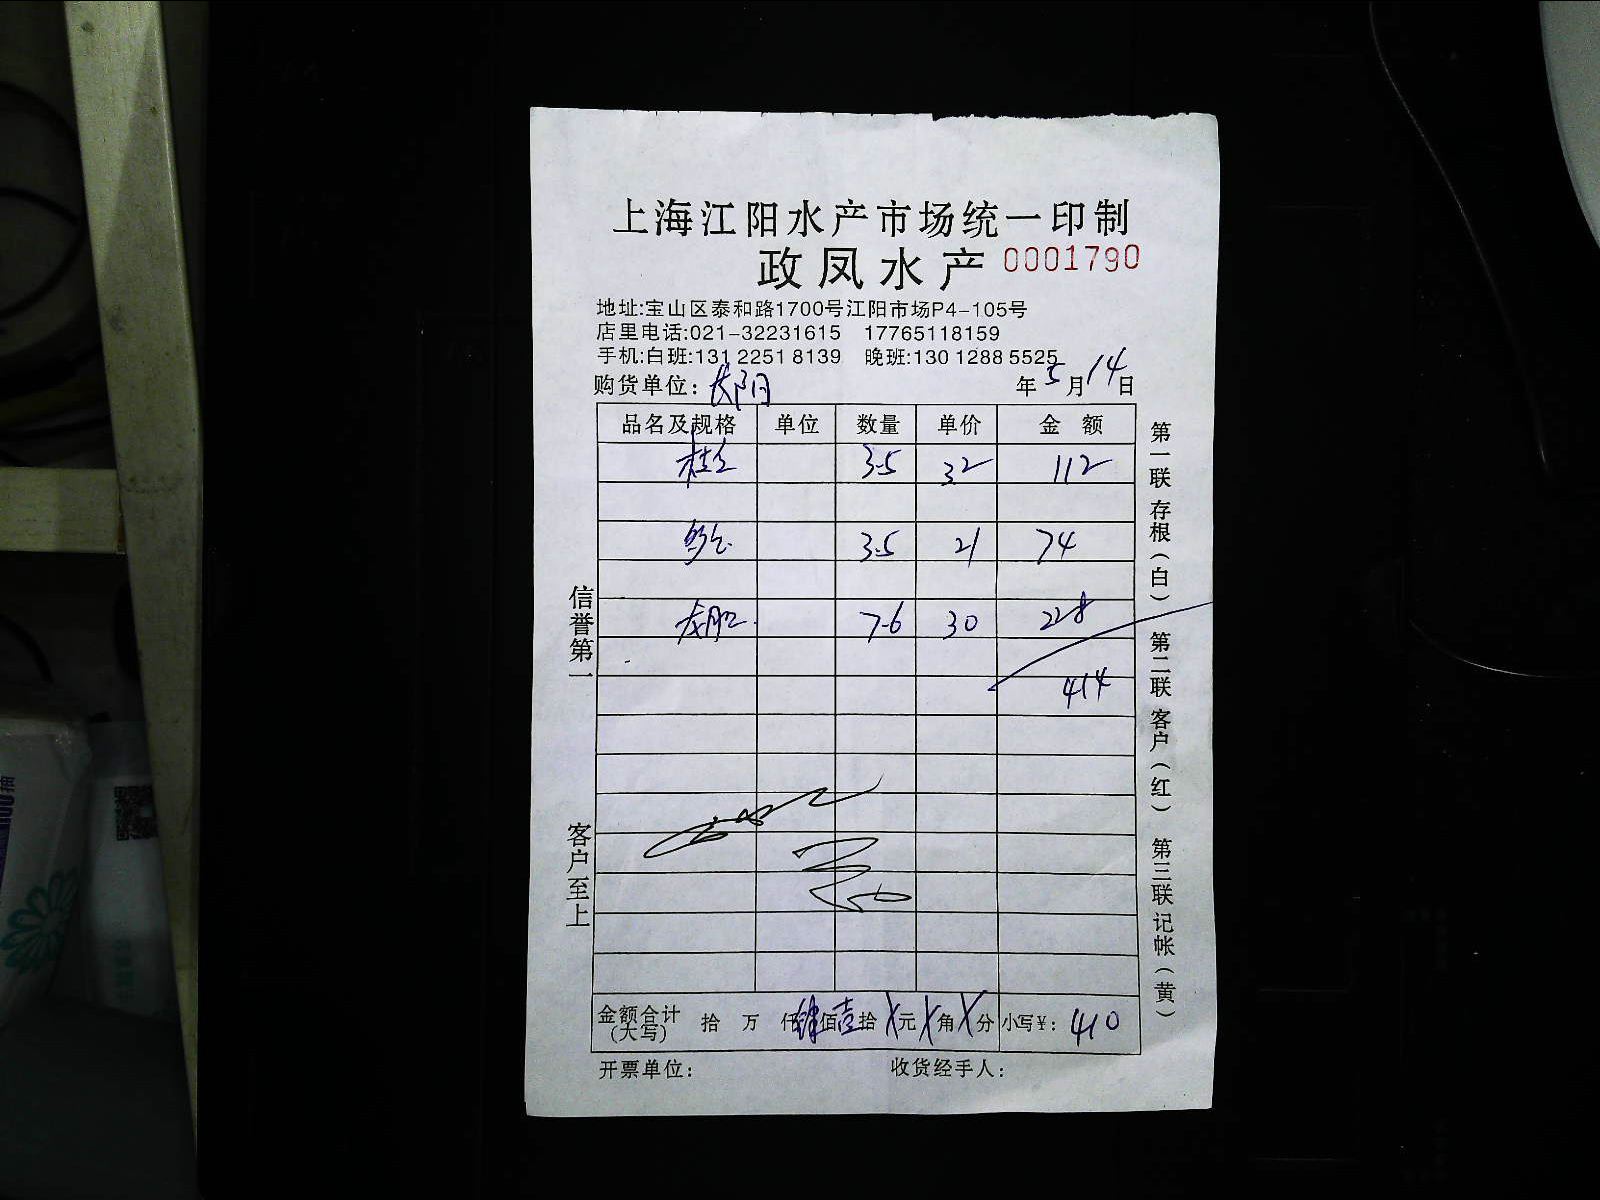 上海江阳水产市场统一印制
政凤水产 0001790
地址:宝山区泰和路1700号江阳市场P4-105号
店里电话:021-32231615 17765118159
手机:白班:131 2251 8139 晚班:130 1288 5525
购货单位: 长阳 年 5 月 14 日
品名及规格 单位 数量 单价 金额
3.5 32 112
3.5 21 74
7.6 30 228
414
金额合计(大写) 拾 万 仟 肆 佰 壹 拾 X 元 X 角 X 分 小写¥: 410
开票单位: 收货经手人:
信誉第一
客户至上
第一联 存根(白) 第二联 客户(红) 第三联 记帐(黄)